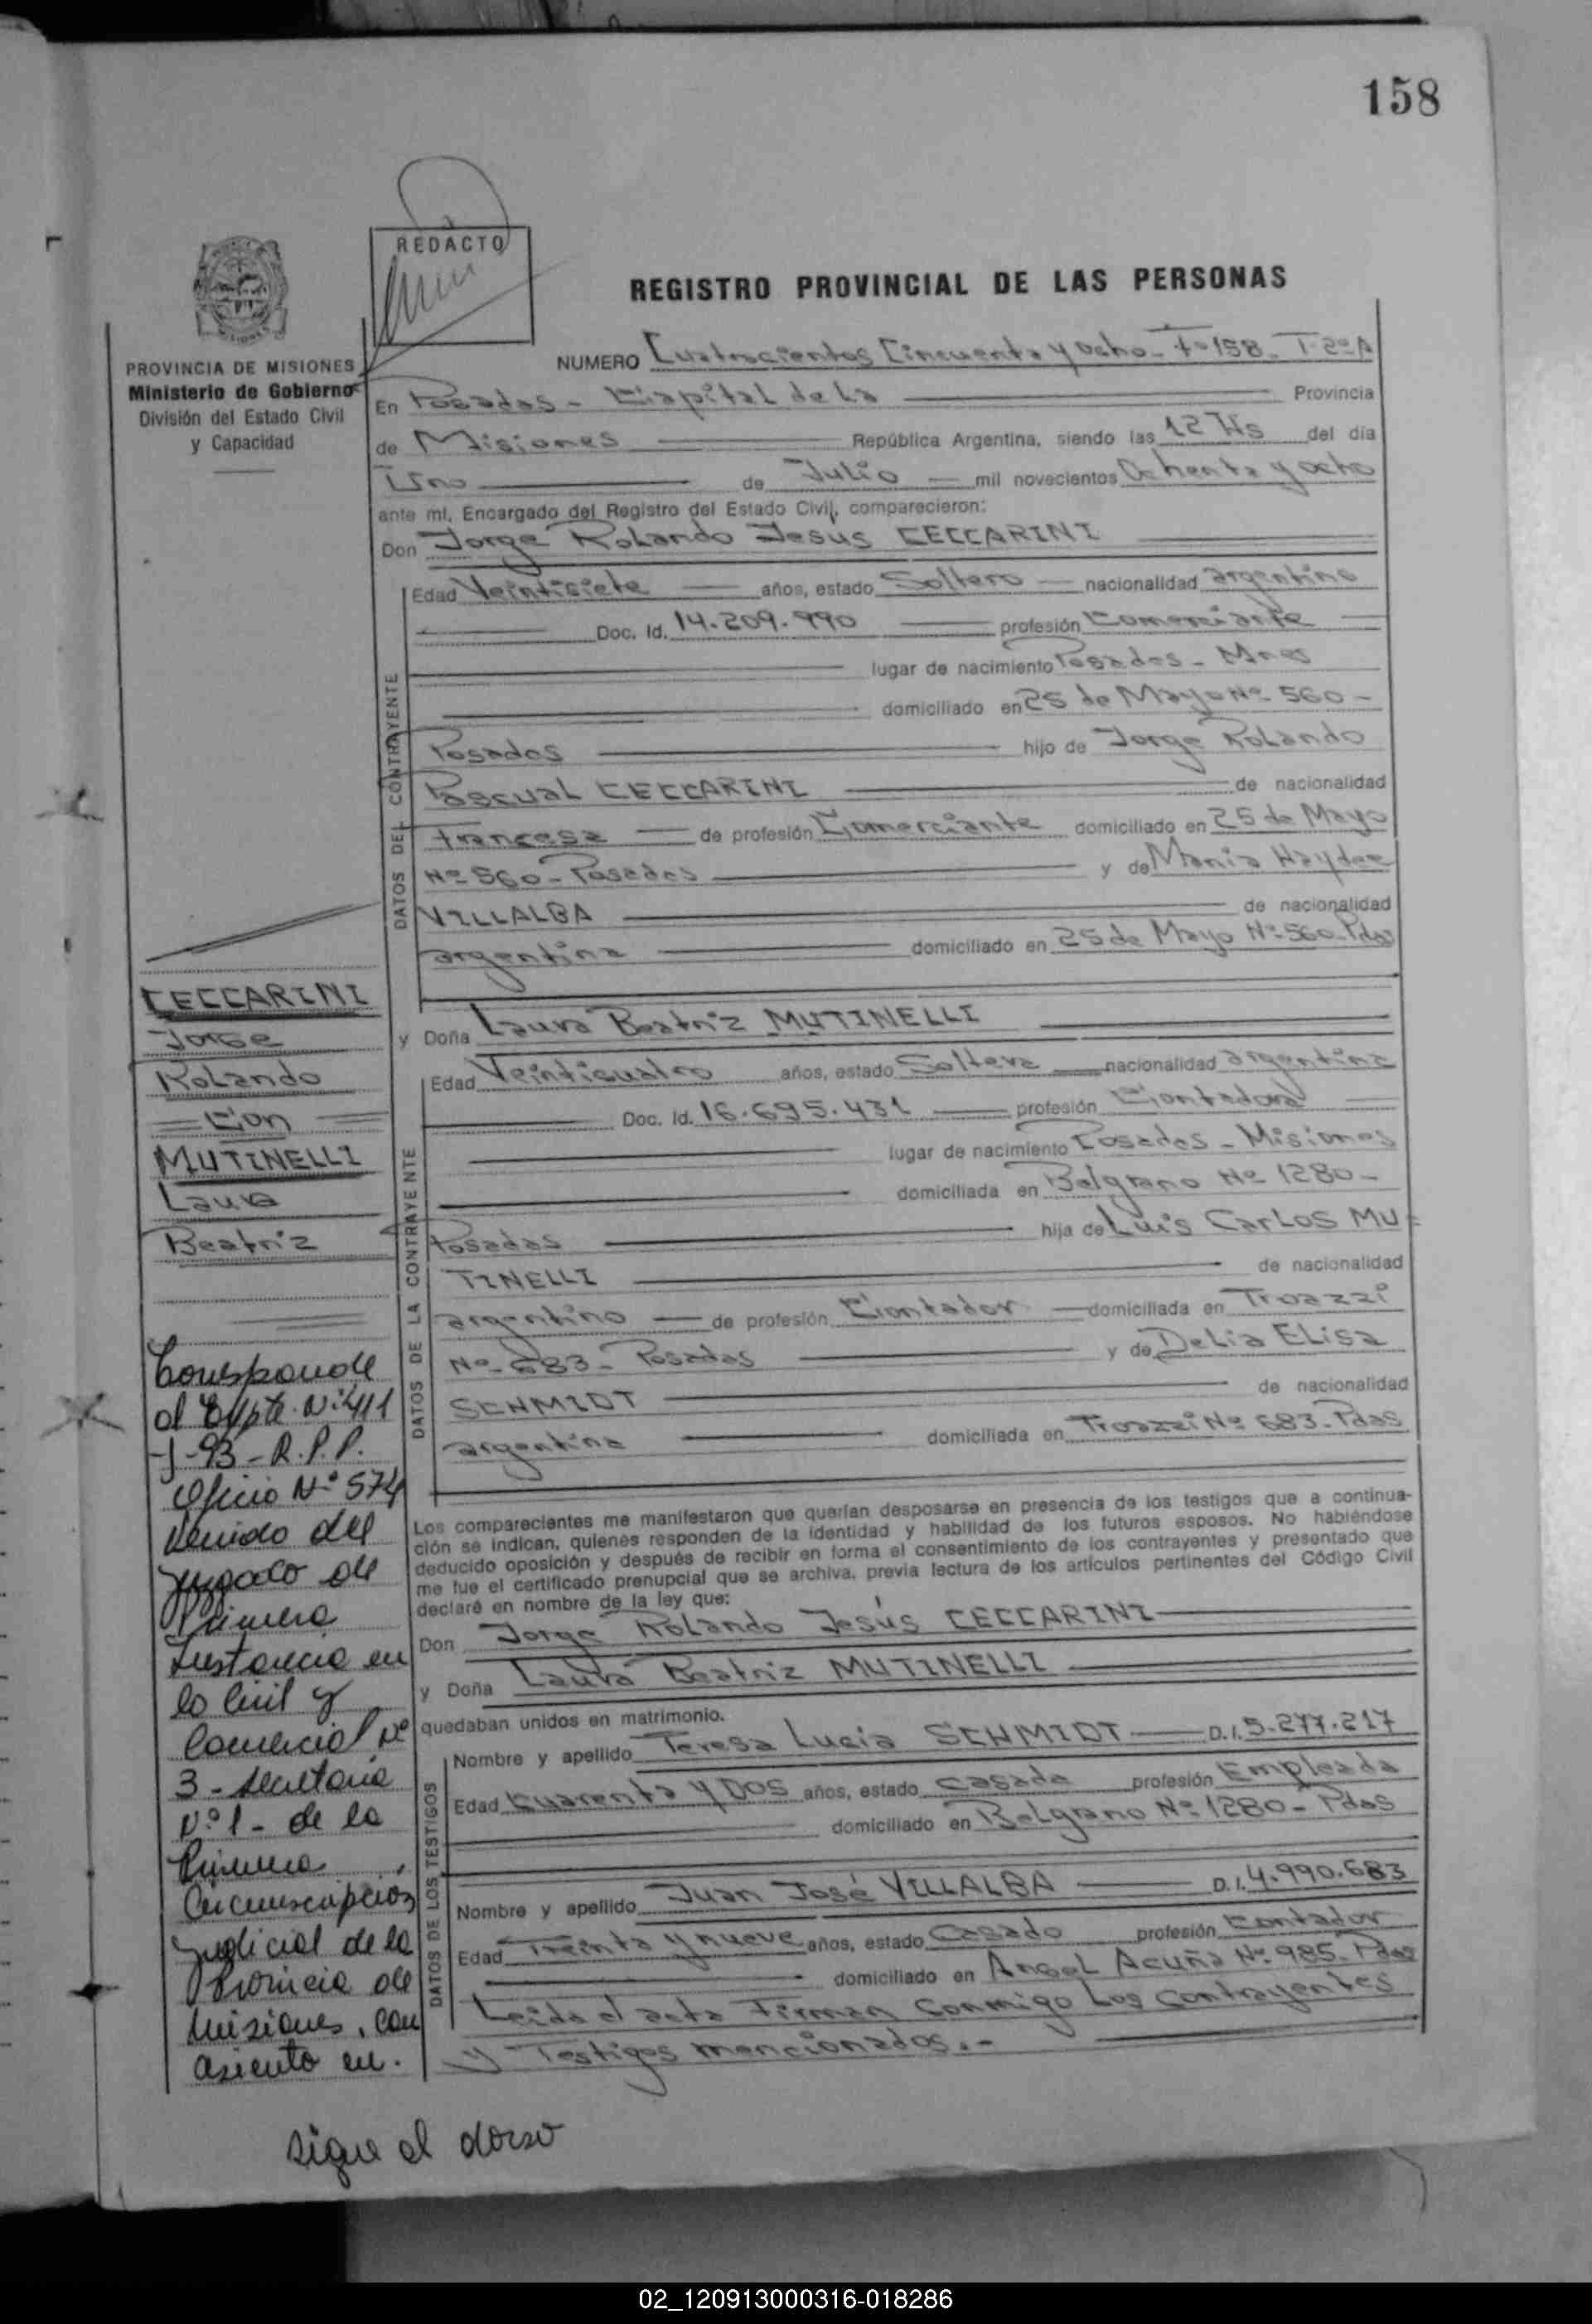 158
REDACTO
REGISTRO PROVINCIAL DE LAS PERSONAS
PROVINCIA DE MISIONES
Ministerio de Gobierno
División del Estado Civil
y Capacidad
NUMERO Cuatrocientos Cincuenta y ocho - Fº 158 - T-2º A
En Posadas - Capital de La Provincia
de Misiones República Argentina, siendo las 12 Hs del día
Uno de Julio mil novecientos Ochenta y ocho
ante mí, Encargado del Registro del Estado Civil, comparecieron:
Don Jorge Rolando Jesus CECCARINI
DATOS DEL CONTRAYENTE
Edad Veintisiete años, estado Soltero nacionalidad argentino
Doc. Id. 14.209.990 profesión Comerciante
lugar de nacimiento Posadas - Mnes
domiciliado en 25 de Mayo Nº 560 -
Posadas hijo de Jorge Rolando
Pascual CECCARINI de nacionalidad
Francesa de profesión Comerciante domiciliado en 25 de Mayo
Nº 560 - Posadas y de Maria Haydee
VILLALBA de nacionalidad
argentina domiciliado en 25 de Mayo Nº 560 - Pdas
y Doña Laura Beatriz MUTINELLI
DATOS DE LA CONTRAYENTE
Edad Veinticuatro años, estado Soltera nacionalidad argentina
Doc. Id. 16.695.431 profesión Contadora
lugar de nacimiento Posadas - Misiones
domiciliada en Belgrano Nº 1280 -
Posadas hija de Luis Carlos MU=
TINELLI de nacionalidad
argentino de profesión Contador domiciliada en Troazzi
Nº 683 - Posadas y de Delia Elisa
SCHMIDT de nacionalidad
argentina domiciliada en Troazzi Nº 683 - Pdas
Los comparecientes me manifestaron que querían desposarse en presencia de los testigos que a continua-
ción se indican, quienes responden de la identidad y habilidad de los futuros esposos. No habiéndose
deducido oposición y después de recibir en forma el consentimiento de los contrayentes y presentado que
me fue el certificado prenupcial que se archiva, previa lectura de los artículos pertinentes del Código Civil
declaré en nombre de la ley que:
Don Jorge Rolando Jesús CECCARINI
y Doña Laura Beatriz MUTINELLI
quedaban unidos en matrimonio.
DATOS DE LOS TESTIGOS
Nombre y apellido Teresa Lucia SCHMIDT D.I. 5.277.217
Edad Cuarenta y DOS años, estado Casada profesión Empleada
domiciliado en Belgrano Nº 1280 - Pdas
Nombre y apellido Juan José VILLALBA D.I. 4.990.683
Edad Treinta y nueve años, estado Casado profesión Contador
domiciliado en Angel Acuña Nº 985 - Pdas
Leida el acta Firman Conmigo Los Contrayentes
y Testigos mencionados.-
CECCARINI
Jorge
Rolando
Con
MUTINELLI
Laura
Beatriz
Corresponde
al Expte. Nº 411
-J-93 - R.P.P.
Oficio Nº 574
Venido del
Juzgado de
Primera
Instancia en
lo Civil y
Comercial Nº
3 - Secretaria
Nº 1 - de la
Primera
Circunscripcion
Judicial de la
Provincia de
Misiones, con
asiento en.
sigue al dorso
02_120913000316-018286